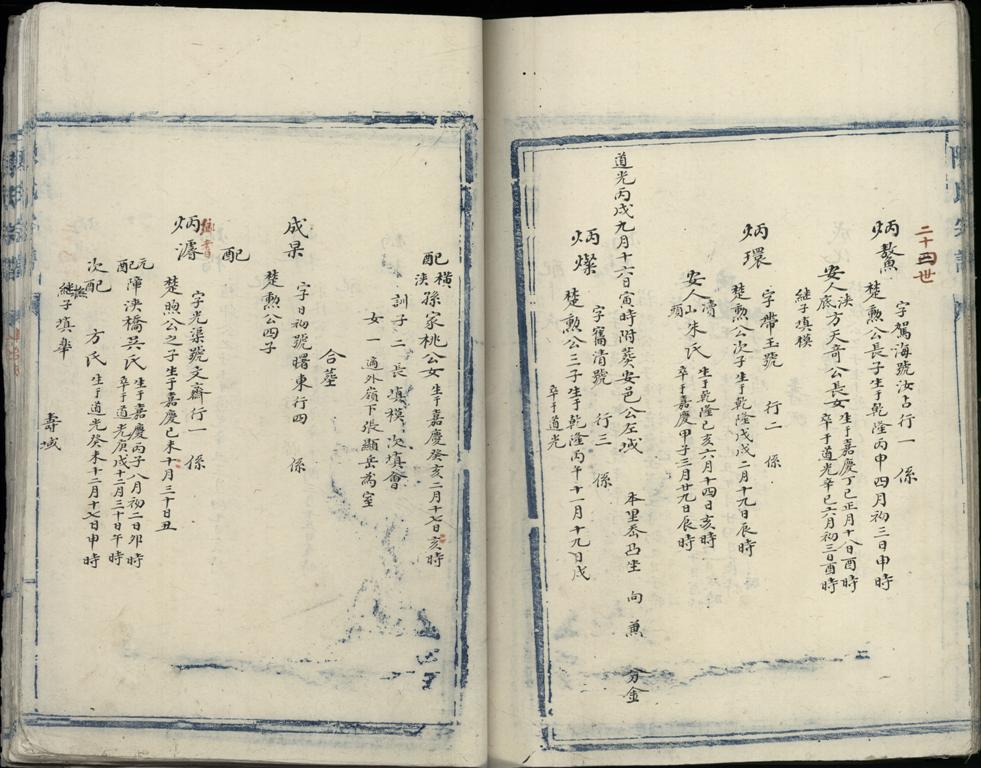 二十四世
炳鰲 字駕海號汝占行一 係
楚勲公長子生于乾隆丙申四月初三日申時
安人㳀底方天奇公長女生于嘉慶丁巳正月十八日酉時
卒于道光辛巳六月初三日酉時
継子填模
炳環 字帶玉號 行二 係
楚勲公次子生于乾隆戊戌二月十九日辰時
安人清山頭朱氏生于乾隆己亥六月十四日亥時
卒于嘉慶甲子三月廿九日辰時
道光丙戌九月十六日寅時附葬安邑公左域 本里坐 向 兼 分金
炳燦 字奮清號 行三 係
楚勲公三子生于乾隆丙午十一月十九日戌
卒于道光
配橫㳀孫家桃公女生于嘉慶癸亥二月十七日亥時
訓子二 長填模 次填會
女一 適外嶺下張顯岳為室
合墓
成杲 字日初號曙東行四 係
楚勲公四子
配
炳濘 字光渠號文齋行一 係
楚煦公之子生于嘉慶己未十月三十日丑
元配障㳀橋吳氏生于嘉慶丙子八月初二日卯時
卒于道光庚戌十二月三十日午時
次配 方氏生于道光癸未十二月十七日申時
継子填華 壽域